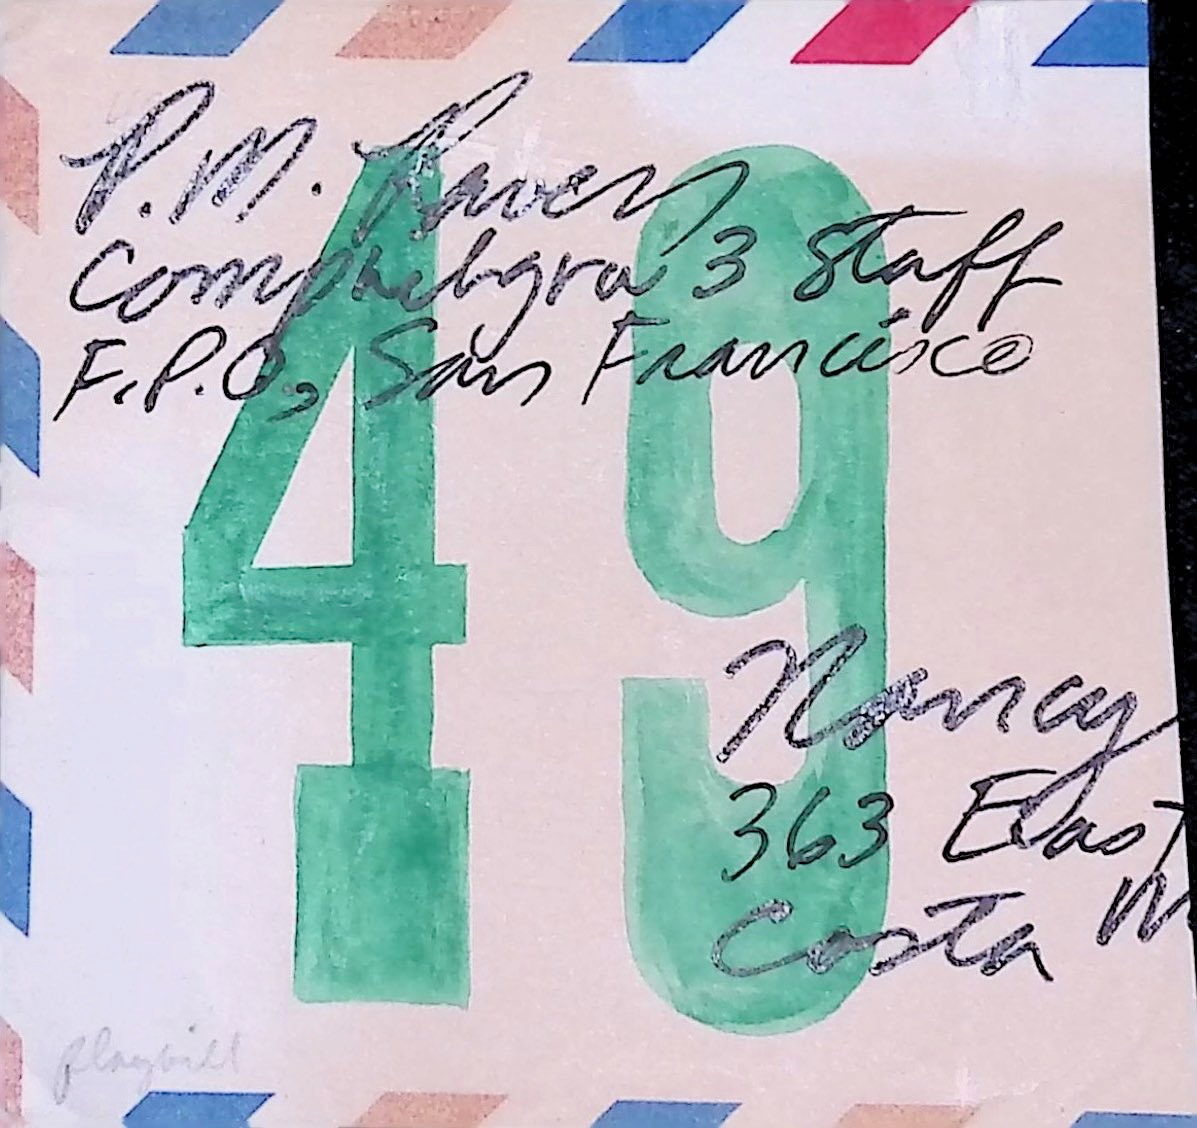 P. M. Raven
Comphibgru 3 Staff
F.P.O., San Francisco
49
Nancy
363 East
Costa M
playbill